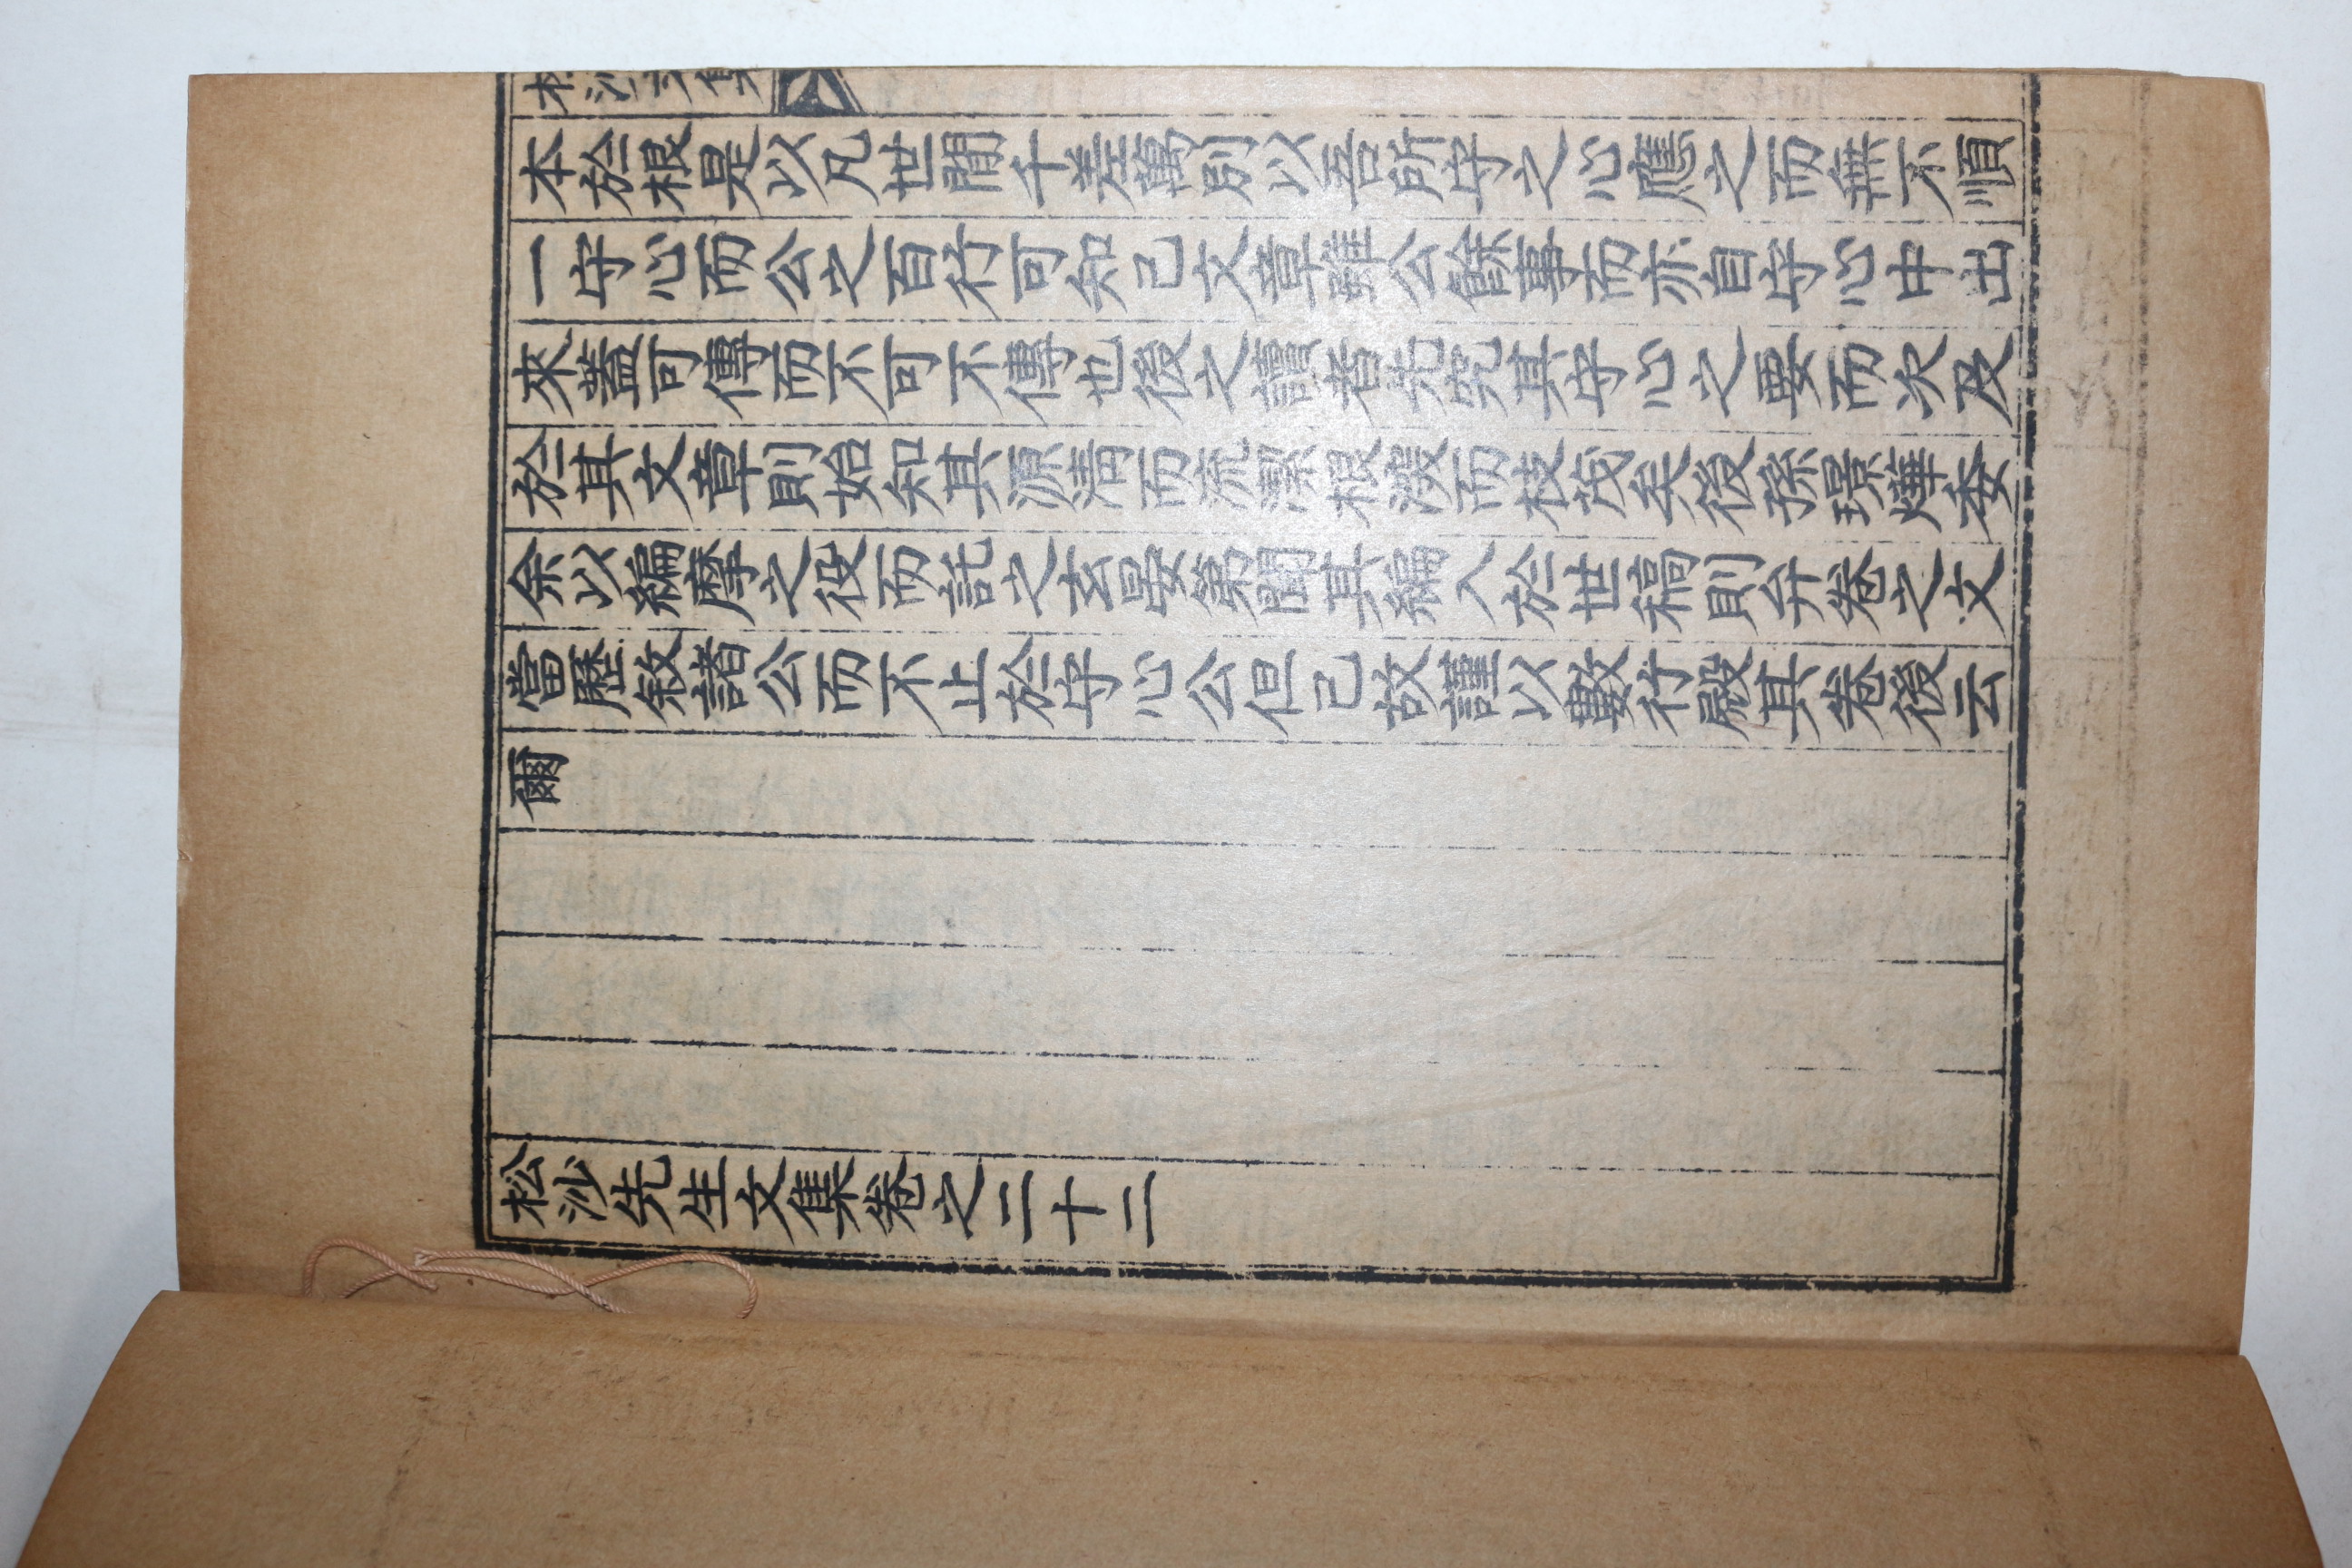 松沙文集
本於根是以凡世間千差萬別以吾所守之心應之而無不順
一守心而公之百行可知已文章雖公餘事而亦自守心中出
來蓋可傳而不可不傳也後之讀者先究其守心之要而次及
於其文章則始知其源淸而流潔根深而枝茂矣後孫璟燁委
余以編摩之役而託之玄晏第聞其編入於世稿則弁卷之文
當歷敘諸公而不止於守心公但已故謹以數行殿其卷後云
爾
松沙先生文集卷之二十二